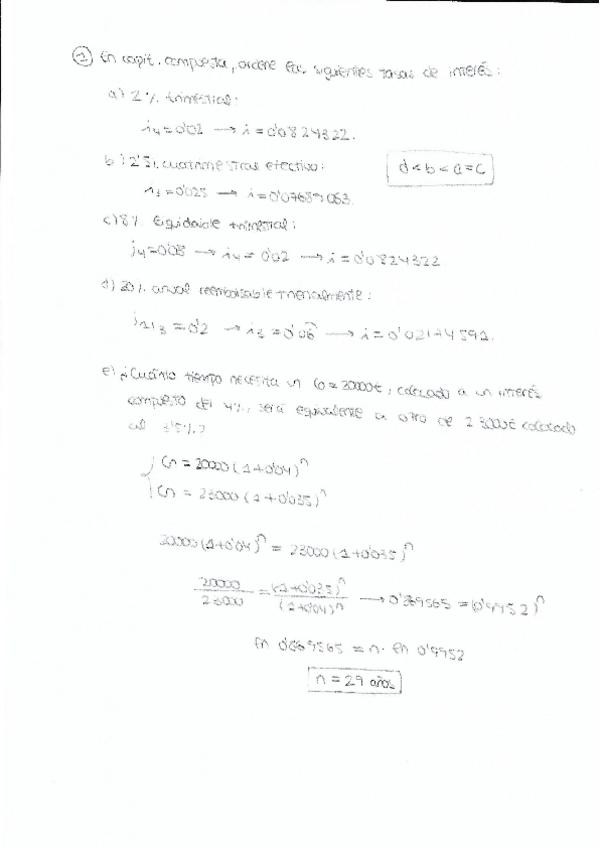 ① En capit. compuesta, ordene las siguientes tasas de interés:
a) 2% trimestral:
i₄=0'02 → i=0'0824322.
b) 2'5% cuatrimestral efectivo:
i₃=0'025 → i=0'07689063.
d<b<a=c
c) 8% trimestral:
j₄=0'08 → i₄=0'02 → i=0'0824322
d) 20% anual :
=0'2 → = → i=
e) ¿Cuánto tiempo necesita un C₀=20000€, colocado a un interés
compuesto del 4%, será equivalente a otro de 23000€ colocado
al 3'5%?
Cn = 20000(1+0'04)ⁿ
Cn = 23000(1+0'035)ⁿ
20000(1+0'04)ⁿ = 23000(1+0'035)ⁿ
20000/23000 = (1+0'035)ⁿ/(1+0'04)ⁿ → 0'869565 = (0'9952)ⁿ
ln 0'869565 = n · ln 0'9952
n = 29 años